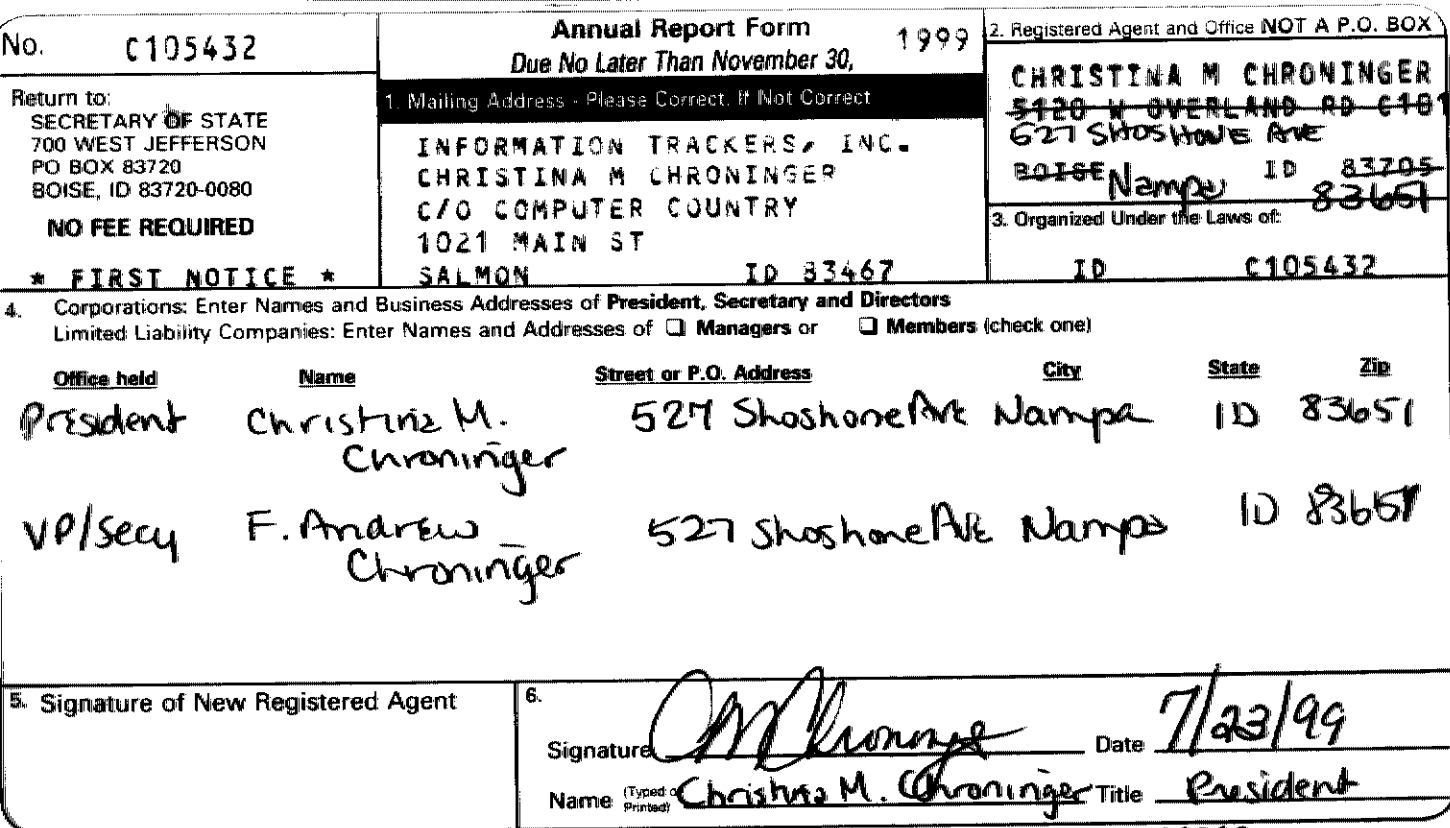 No. C105432
Return to:
SECRETARY OF STATE
700 WEST JEFFERSON
PO BOX 83720
BOISE, ID 83720-0080
NO FEE REQUIRED
* FIRST NOTICE *
Annual Report Form 1999
Due No Later Than November 30,
1. Mailing Address - Please Correct, If Not Correct
INFORMATION TRACKERS, INC.
CHRISTINA M CHRONINGER
C/O COMPUTER COUNTRY
1021 MAIN ST
SALMON ID 83467
2. Registered Agent and Office NOT A P.O. BOX
CHRISTINA M CHRONINGER
5120 W OVERLAND RD C101
527 SHOSHONE AVE
BOISE Nampa ID 83705
83651
3. Organized Under the Laws of:
ID C105432
4. Corporations: Enter Names and Business Addresses of President, Secretary and Directors
Limited Liability Companies: Enter Names and Addresses of ☐ Managers or ☐ Members (check one)
Office held Name Street or P.O. Address City State Zip
President Christina M. 527 Shoshone Ave Nampa ID 83651
Chroninger
VP/Secy F. Andrew 527 Shoshone Ave Nampa ID 83651
Chroninger
5. Signature of New Registered Agent
6.
Signature CM Chroninger Date 7/23/99
Name (Typed or Printed) Christina M. Chroninger Title President